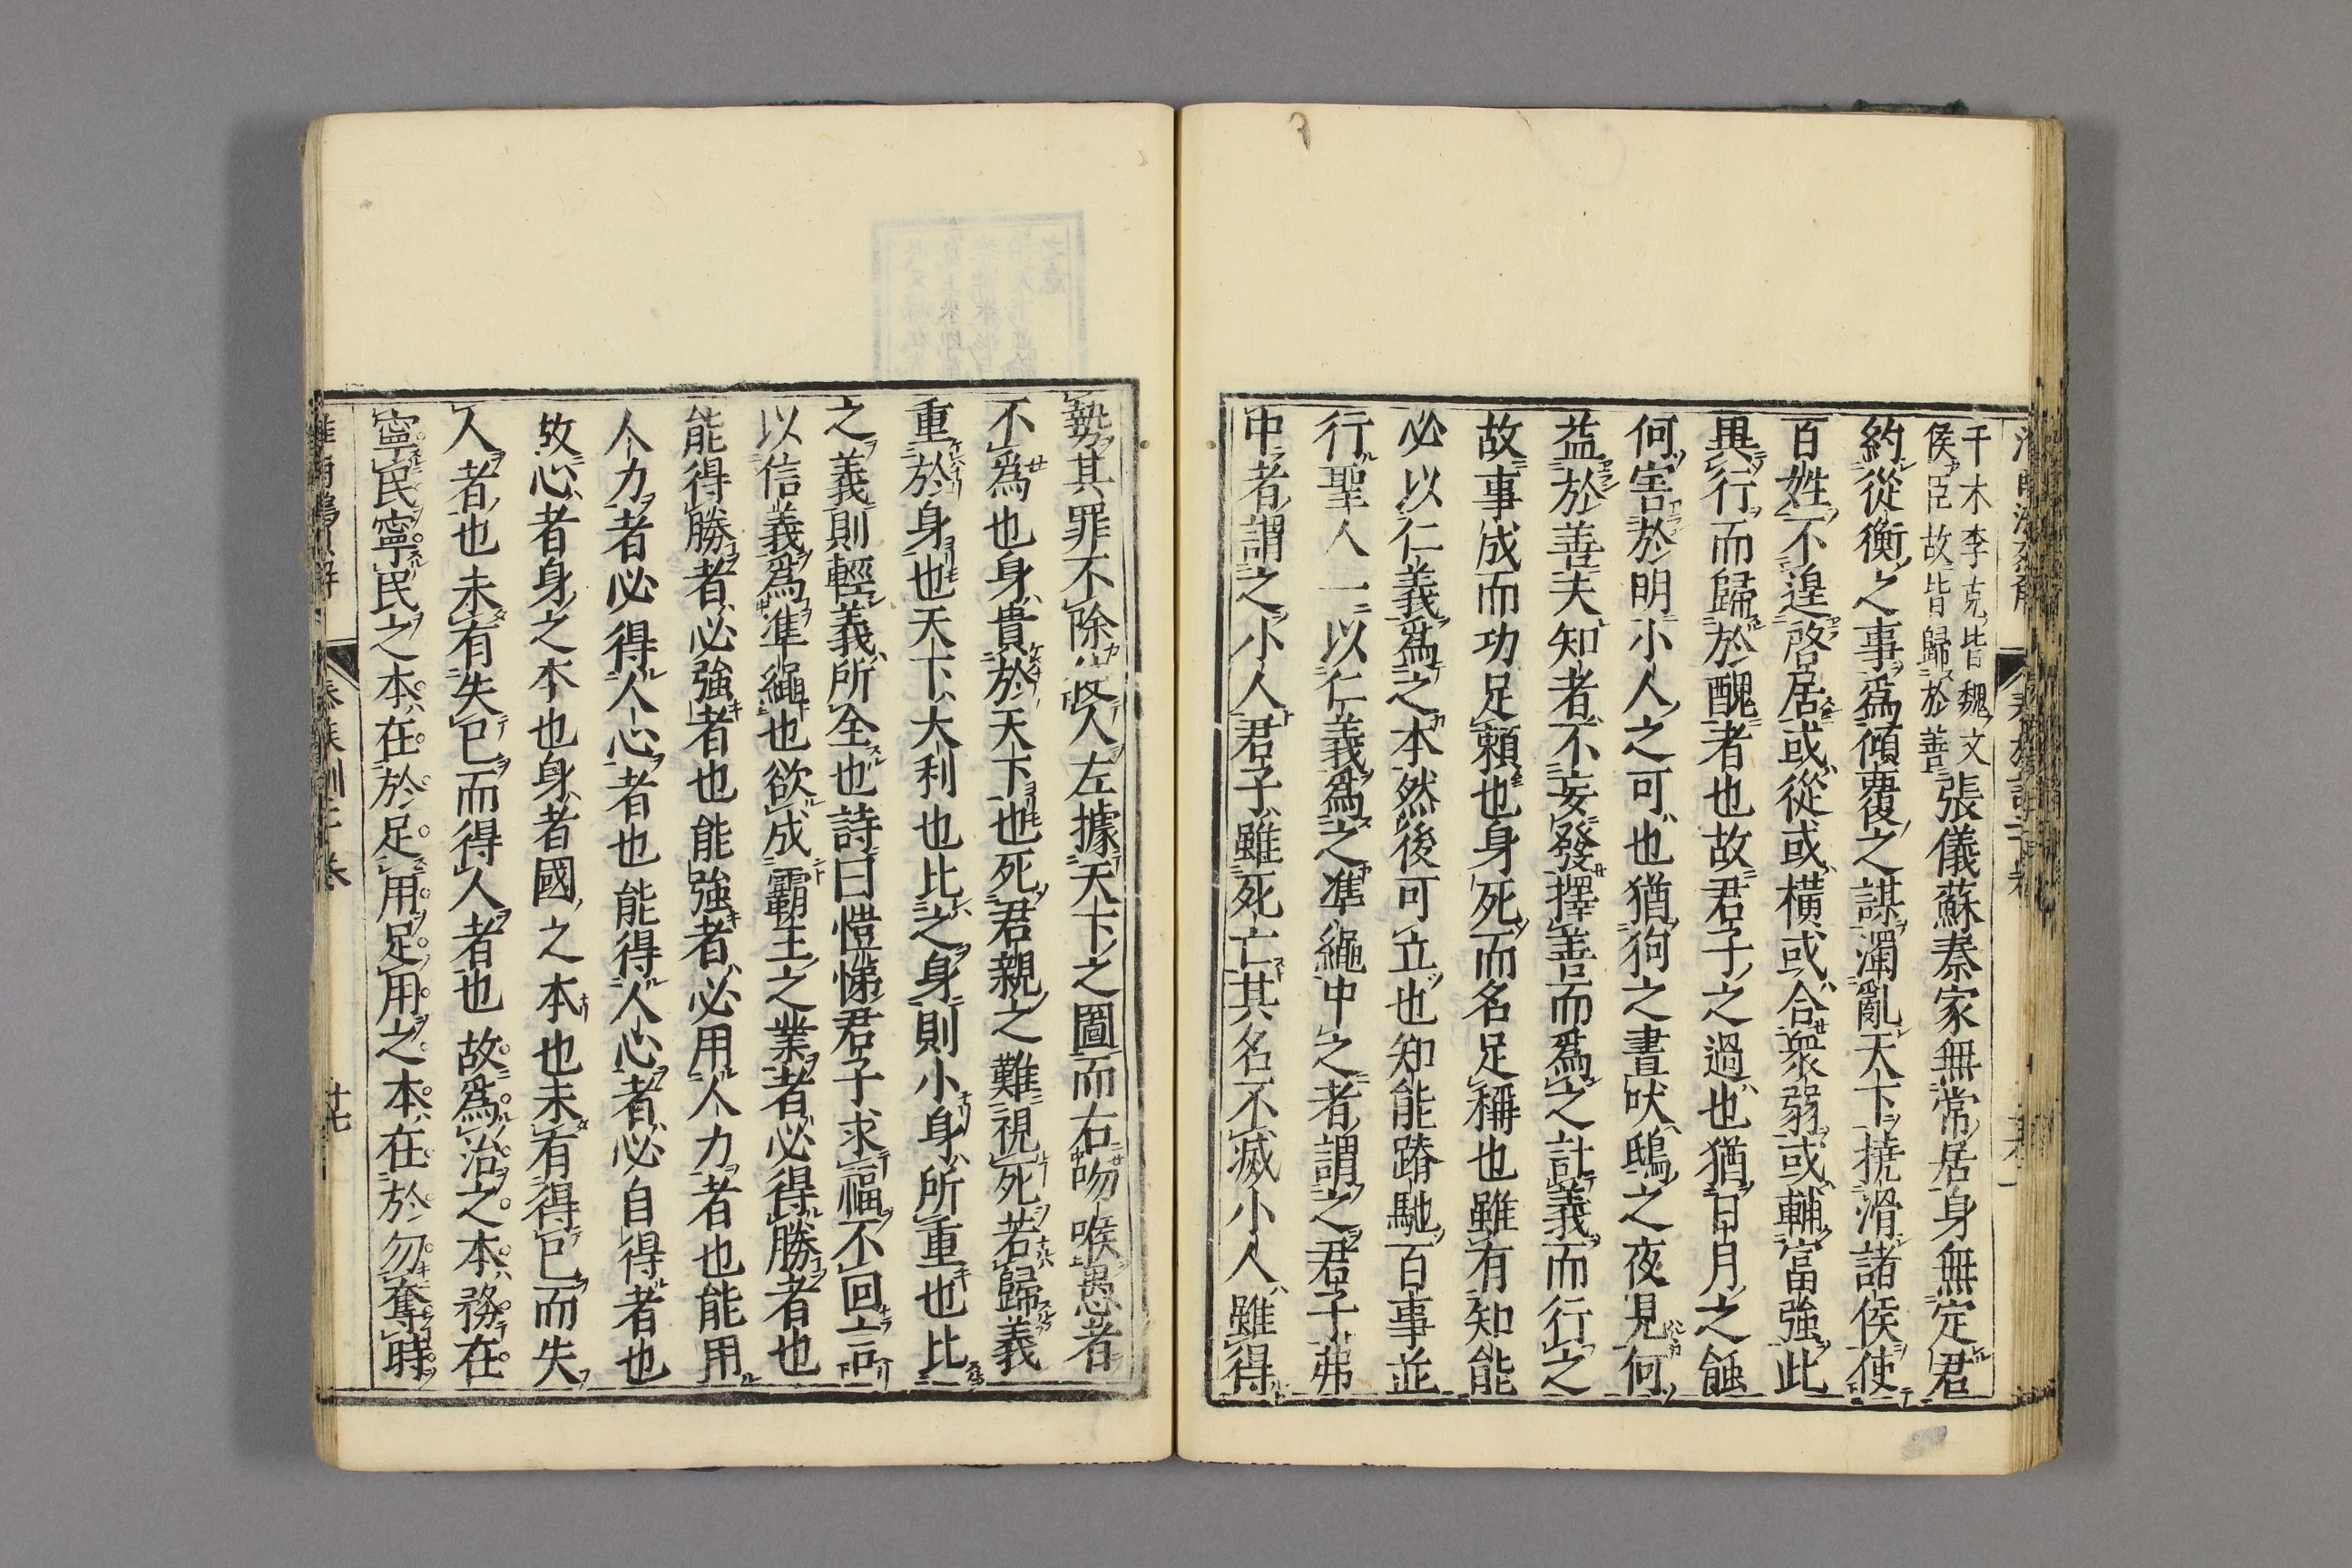 干木李克皆魏文
侯臣故皆歸於善
張儀蘇秦家無常居身無定君
約從衡之事爲傾覆之謀濁亂天下撓滑諸侯使
百姓不遑啓居或從或橫或合衆弱或輔富強此
異行而歸於醜者也故君子之過也猶日月之蝕
何害於明小人之可也猶狗之晝吠鴟之夜見何
益於善夫知者不妄發擇善而爲之計義而行之
故事成而功足賴也身死而名足稱也雖有知能
必以仁義爲之本然後可立也知能蹐馳百事並
行聖人一以仁義爲之準繩中之者謂之君子弗
中者謂之小人君子雖死亡其名不滅小人雖得
勢其罪不除人左據天下之圖而右吻喉愚者
不爲也身貴於天下也死君親之難視死若歸義
重於身也天下大利也比之身則小身所重也比
之義則輕義所全也詩曰愷悌君子求福不回言
以信義爲準繩也欲成霸王之業者必得勝者也
能得勝者必強者也能強者必用人力者也能用
人力者必得人心者也能得人心者必自得者也
故心者身之本也身者國之本也未有得已而失
人者也未有失已而得人者也故爲治之本務在
寧民寧民之本在於足用足用之本在於勿奪時
十七